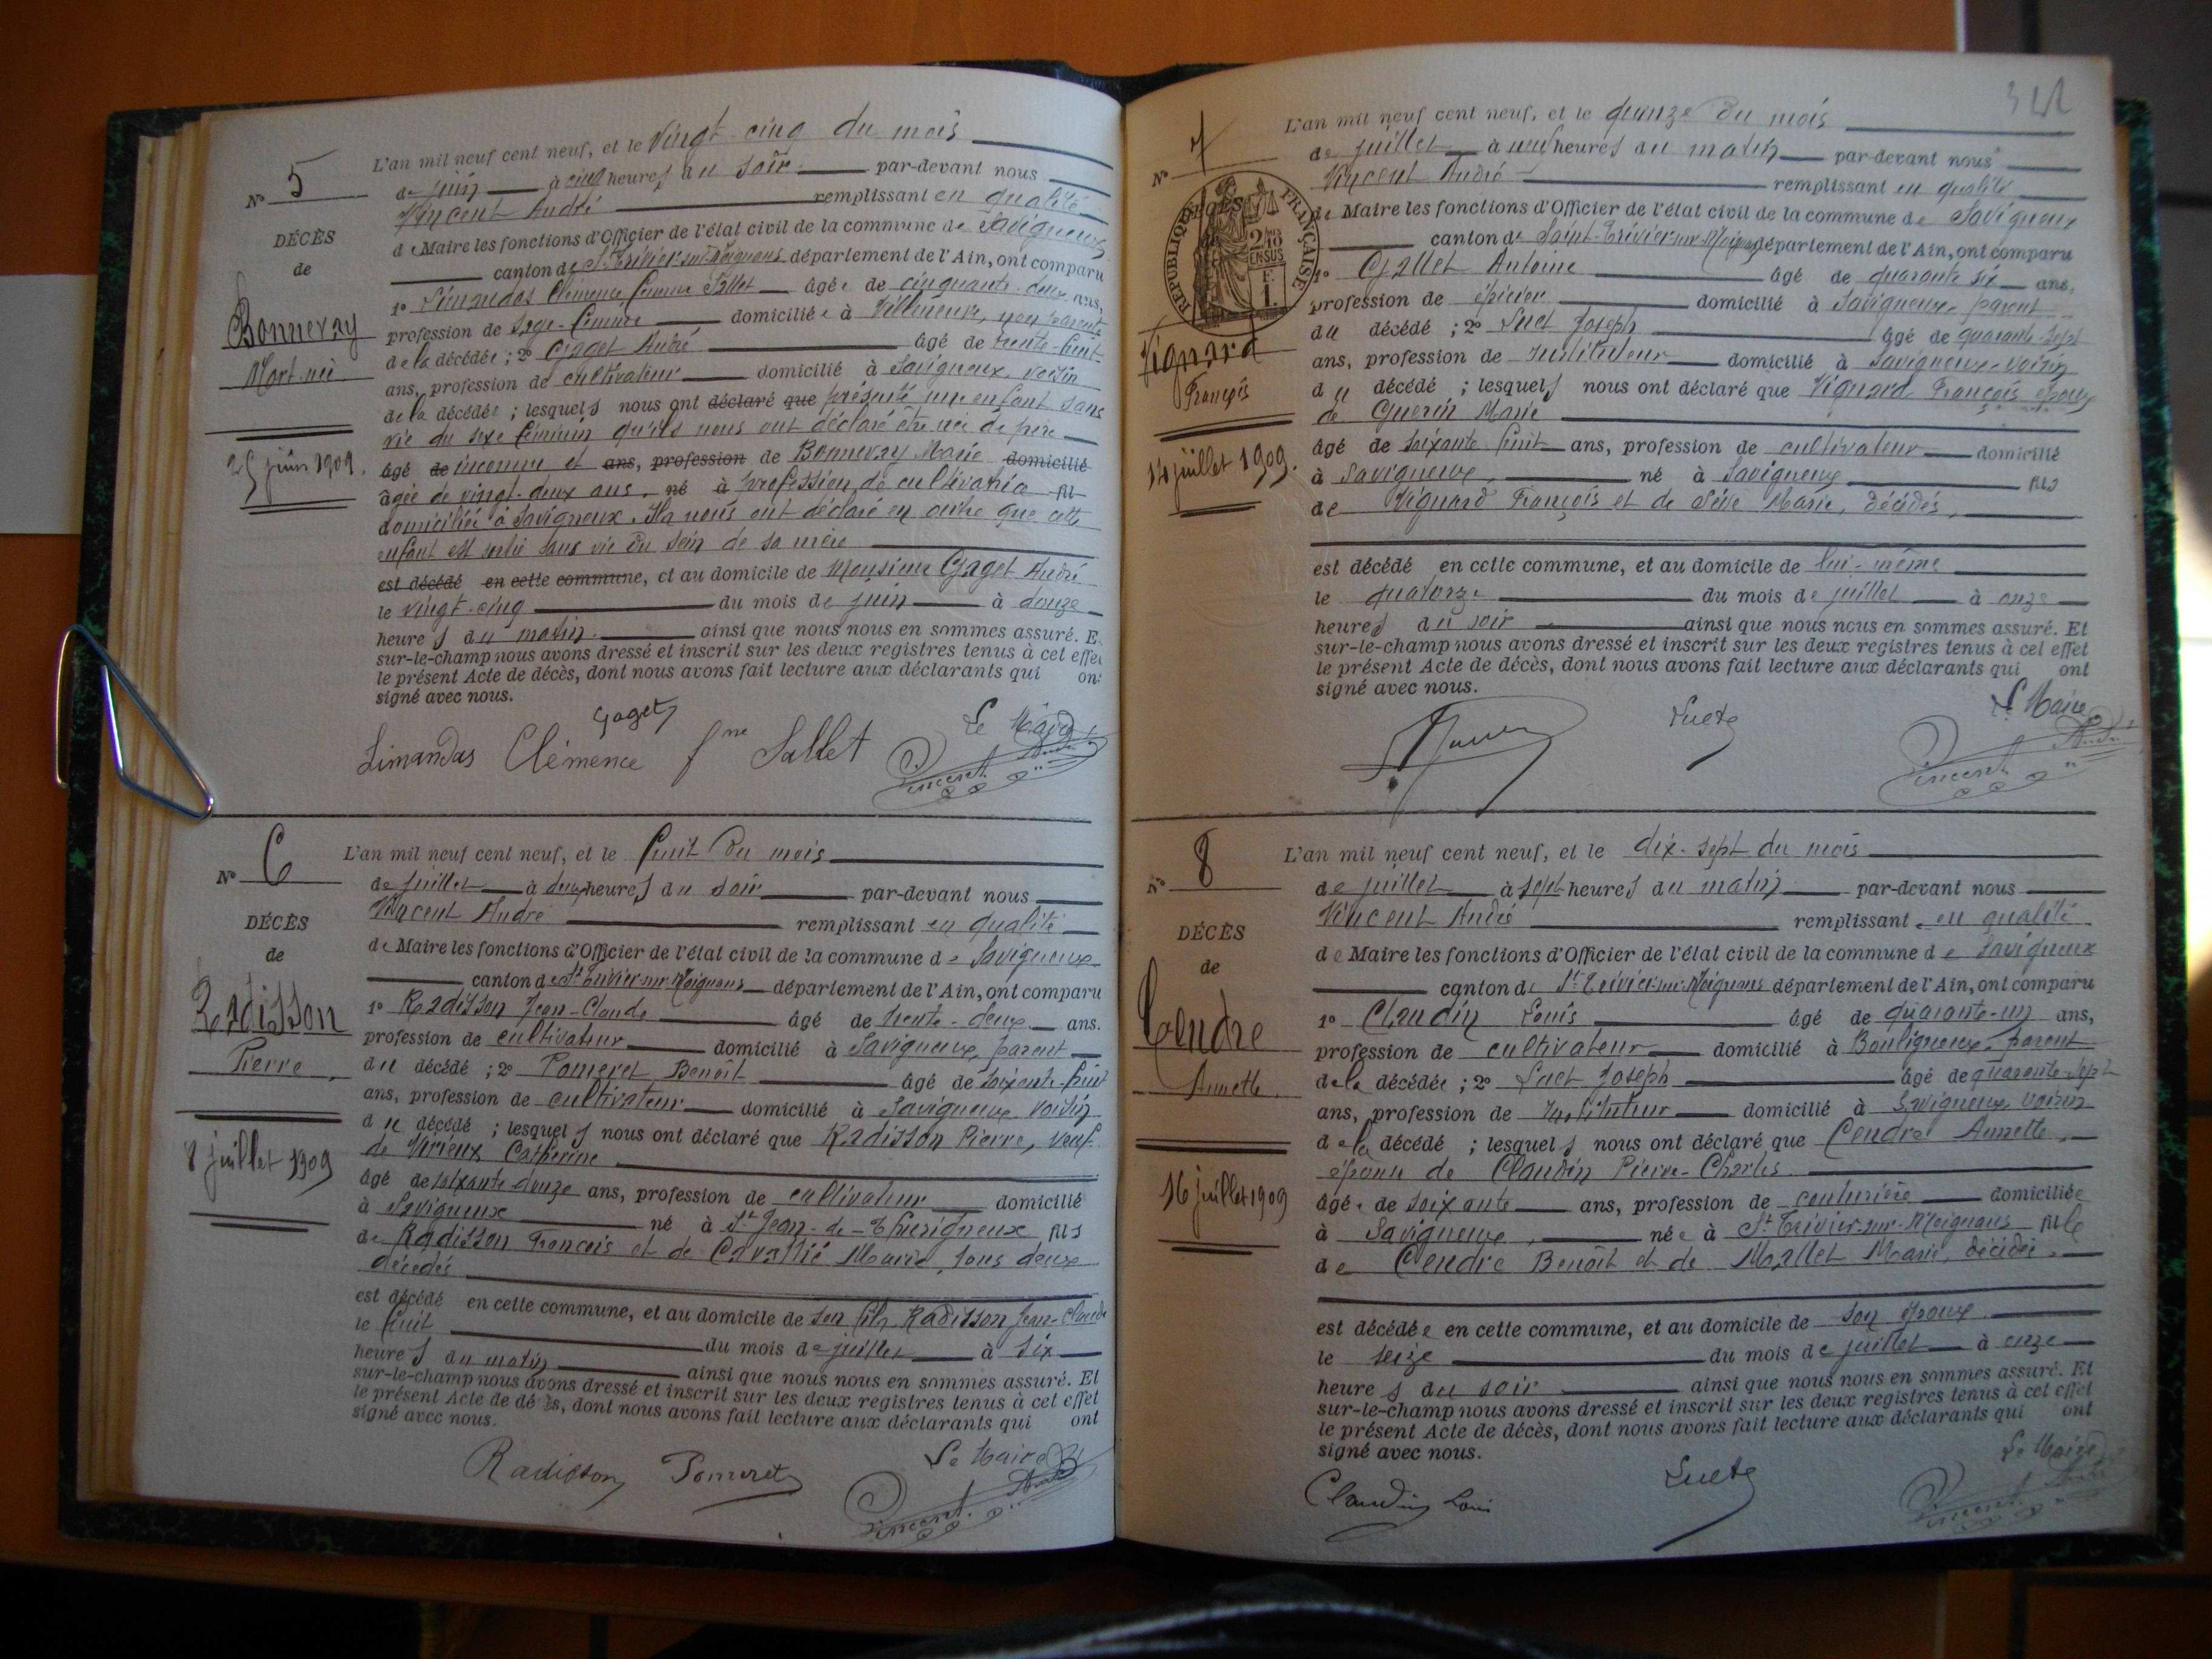 L'an mil neuf cent neuf, et le Vingt-cinq du mois
N° 5
de juin à cinq heures du soir par-devant nous
Vincent André remplissant en qualité
DÉCÈS
de Maire les fonctions d'Officier de l'état civil de la commune de Savigneux
de
canton de St Trivier-sur-Moignans département de l'Ain, ont comparu
1° Limandas Clémence femme Sallet âgée de cinquante-deux ans,
Bonnevay
profession de Sage-femme domiciliée à Villeneuve, non parente
de la décédée ; 2° Gaget André âgé de trente-huit
Mort-né
ans, profession de cultivateur domicilié à Savigneux, voisin
de la décédée ; lesquels nous ont déclaré que présenté un enfant sans
vie du sexe féminin qu'ils nous ont déclaré être né de père
25 juin 1909.
âgé de inconnu et ans, profession de Bonnevay Marie domicilié
âgée de vingt-deux ans, né à profession de cultivatrice fil
domiciliée à Savigneux. Ils nous ont déclaré en outre que cette
enfant est sortie sans vie du sein de sa mère
est décédé en cette commune, et au domicile de Monsieur Gaget André
le vingt-cinq du mois de juin à douze
heures du matin ainsi que nous nous en sommes assuré. E
sur-le-champ nous avons dressé et inscrit sur les deux registres tenus à cet effet
le présent Acte de décès, dont nous avons fait lecture aux déclarants qui ont
signé avec nous.
Gaget
Le Maire
Limandas Clémence fme Sallet
Vincent André
N° 6
L'an mil neuf cent neuf, et le huit du mois
de juillet à deux heures du soir par-devant nous
Vincent André remplissant en qualité
DÉCÈS
de Maire les fonctions d'Officier de l'état civil de la commune de Savigneux
de
canton de St Trivier-sur-Moignans département de l'Ain, ont comparu
1° Radisson Jean-Claude âgé de trente-deux ans.
Radisson
profession de cultivateur domicilié à Savigneux, parent
Pierre
du décédé ; 2° Pomeret Benoît âgé de soixante-huit
ans, profession de cultivateur domicilié à Savigneux voisin
du décédé ; lesquels nous ont déclaré que Radisson Pierre, veuf
de Verieux Catherine
8 juillet 1909
âgé de soixante-douze ans, profession de cultivateur domicilié
à Savigneux né à St Jean-de-Thurigneux fils
de Radisson François et de Marie, tous deux
décédés
est décédé en cette commune, et au domicile de son fils Radisson Jean-Claude
le huit du mois de juillet à six
heures du matin ainsi que nous nous en sommes assuré. Et
sur-le-champ nous avons dressé et inscrit sur les deux registres tenus à cet effet
le présent Acte de décès, dont nous avons fait lecture aux déclarants qui ont
signé avec nous.
Radisson Pomeret
Le Maire
Vincent André
L'an mil neuf cent neuf, et le quinze du mois
N° 7
de juillet à neuf heures du matin par-devant nous
Vincent André remplissant en qualité
RÉPUBLIQUE FRANÇAISE
DÉCÈS
2/10 EN SUS
F. 1.
de Maire les fonctions d'Officier de l'état civil de la commune de Savigneux
canton de Saint-Trivier-sur-Moignans département de l'Ain, ont comparu
1° Antoine âgé de quarante-six ans,
profession de épicier domicilié à Savigneux, parent
du décédé ; 2° Suet Joseph âgé de quarante-sept
Vignard
ans, profession de Instituteur domicilié à Savigneux, voisin
François
du décédé ; lesquels nous ont déclaré que Vignard François époux
de Guerin Marie
14 juillet 1909.
âgé de soixante-huit ans, profession de cultivateur domicilié
à Savigneux né à Savigneux fils
de Vignard François et de Marie, décédés,
est décédé en cette commune, et au domicile de lui-même
le quatorze du mois de juillet à onze
heures du soir ainsi que nous nous en sommes assuré. Et
sur-le-champ nous avons dressé et inscrit sur les deux registres tenus à cet effet
le présent Acte de décès, dont nous avons fait lecture aux déclarants qui ont
signé avec nous.
Suet
Le Maire
Vincent André
N° 8
L'an mil neuf cent neuf, et le dix-sept du mois
de juillet à sept heures du matin par-devant nous
Vincent André remplissant en qualité
DÉCÈS
de Maire les fonctions d'Officier de l'état civil de la commune de Savigneux
de
canton de St Trivier-sur-Moignans département de l'Ain, ont comparu
1° Claudin Louis âgé de quarante-un ans,
Cendre
profession de cultivateur domicilié à Bouligneux, parent
Annette
de la décédée ; 2° Suet Joseph âgé de quarante-sept
ans, profession de Instituteur domicilié à Savigneux, voisin
de la décédé ; lesquels nous ont déclaré que Cendre Annette,
épouse de Claudin Pierre-Charles
16 juillet 1909
âgée de soixante ans, profession de couturière domiciliée
à Savigneux, née à St Trivier-sur-Moignans fille
de Cendre Benoît et de Mallet Marie, décédés.
est décédée en cette commune, et au domicile de son époux
le seize du mois de juillet à onze
heures du soir ainsi que nous nous en sommes assuré. Et
sur-le-champ nous avons dressé et inscrit sur les deux registres tenus à cet effet
le présent Acte de décès, dont nous avons fait lecture aux déclarants qui ont
signé avec nous.
Claudin Louis
Suet
Le Maire
Vincent André